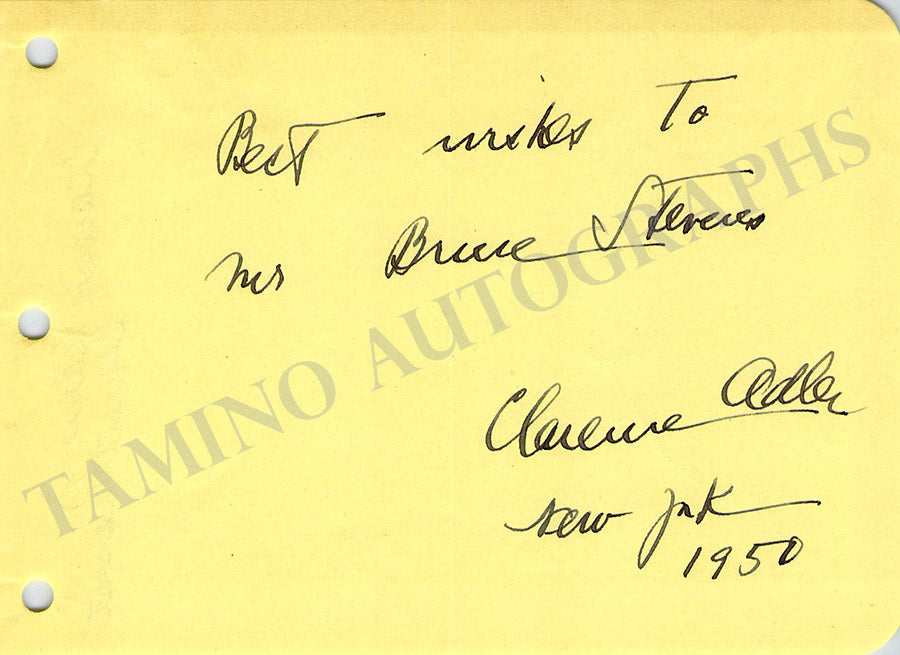 Best wishes To
Mr Bruce Stevens
TAMINO AUTOGRAPHS
Clarence Adler
New York
1950